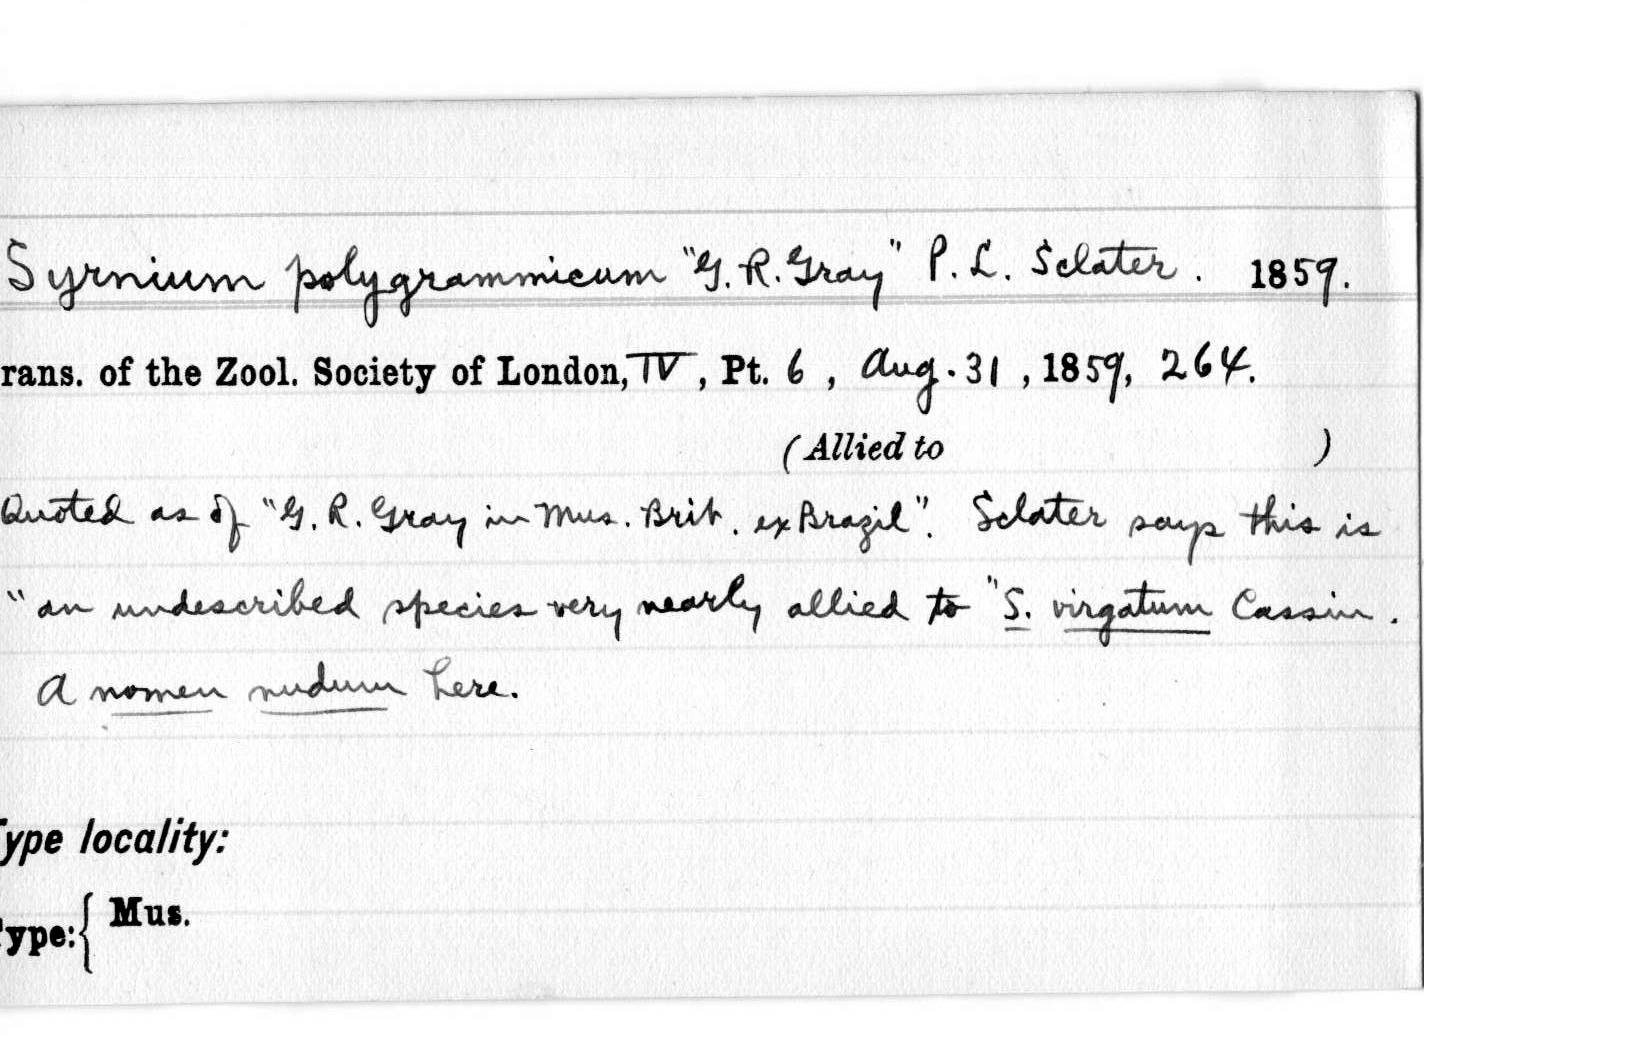 Syrnium polygrammicum "G. R. Gray" P. L. Sclater. 1859.
rans. of the Zool. Society of London, IV, Pt. 6, Aug. 31, 1859, 264.
(Allied to )
Quoted as of "G. R. Gray in Mus. Brit. ex Brazil". Sclater says this is
"an undescribed species very nearly allied to "S. virgatum Cassin.
A nomen nudum here.
Type locality:
Type: { Mus.